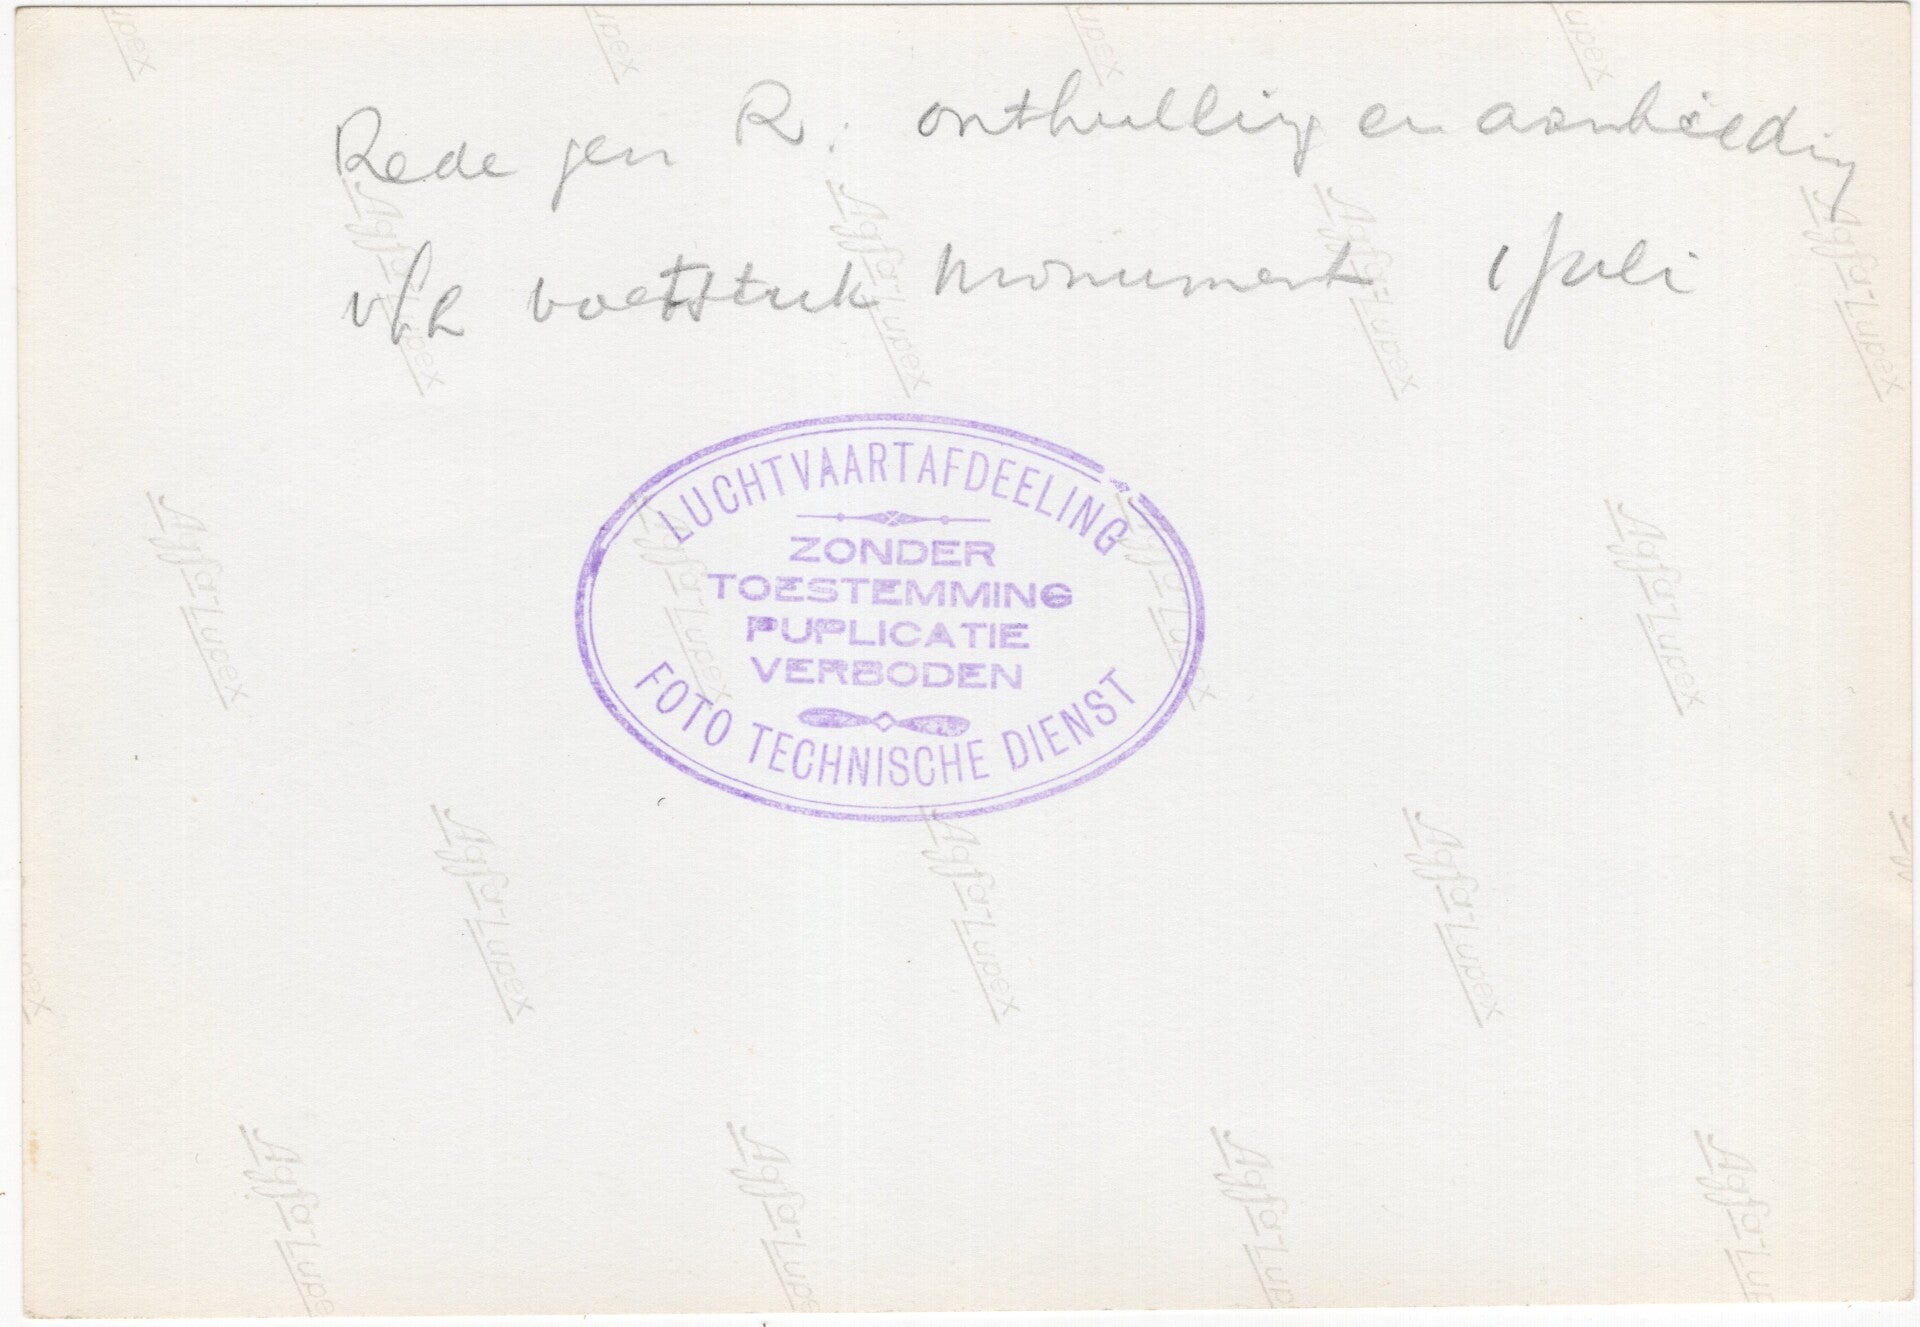 Rede gen R. onthulling en aanbieding
v/h voetstuk Monument 1 Juli
LUCHTVAARTAFDEELING
ZONDER
TOESTEMMING
PUPLICATIE
VERBODEN
FOTO TECHNISCHE DIENST
Agfa-Lupex